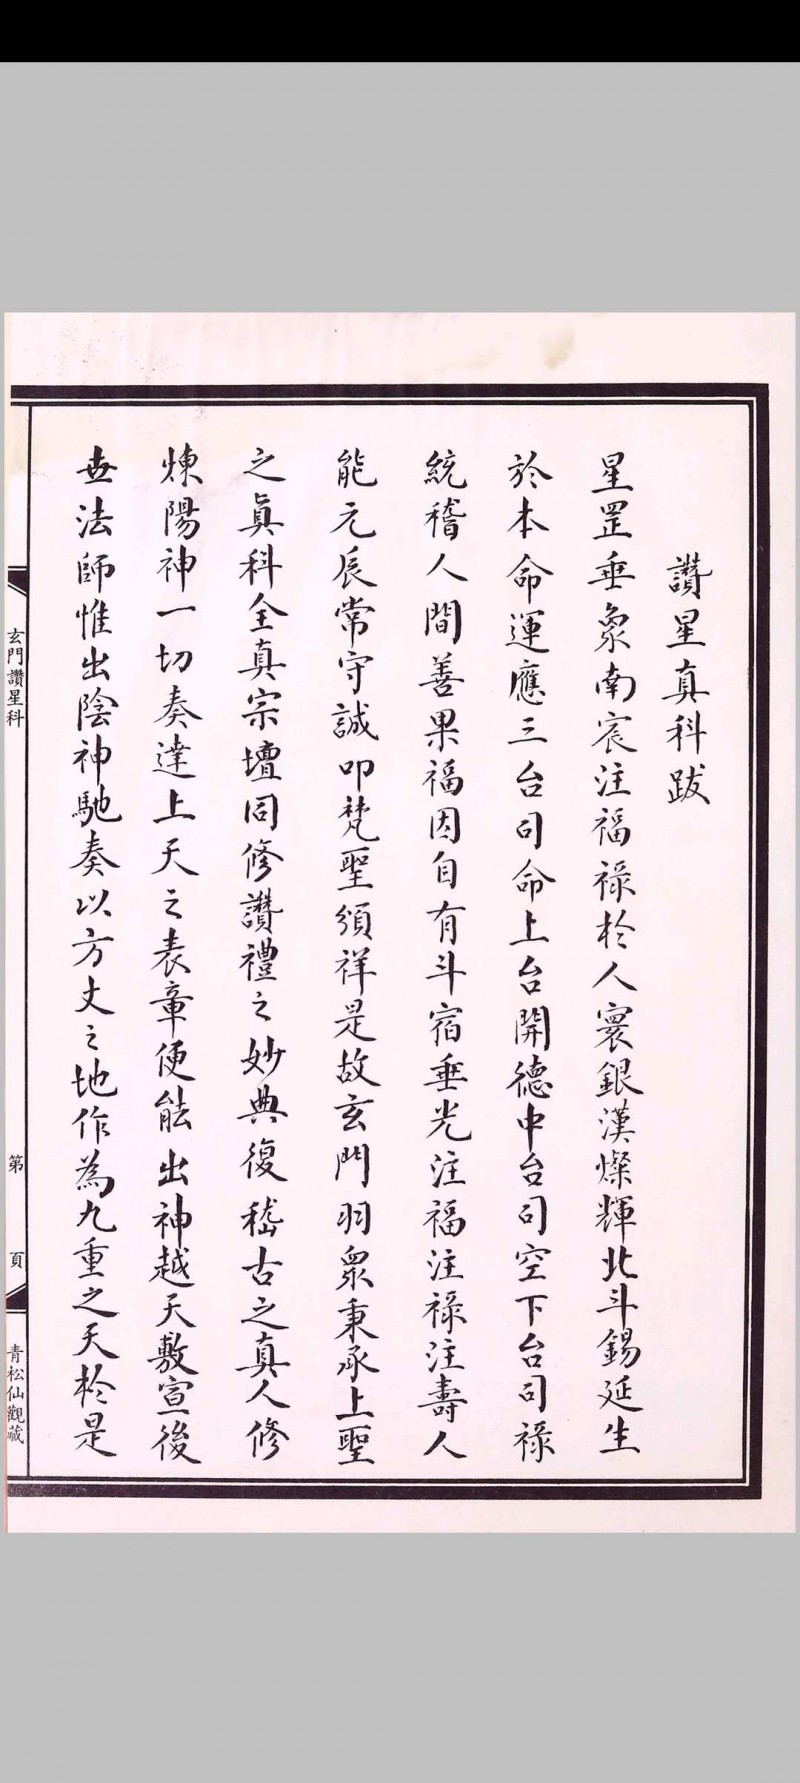 讚星真科跋
星罡垂象南宸注福祿於人寰銀漢燦輝北斗錫延生
於本命運應三台司命上台開德中台司空下台司祿
統稽人間善果福因自有斗宿垂光注福注祿注壽人
能元辰常守誠叩梵聖頒祥是故玄門羽衆秉承上聖
之真科全真宗壇同修讚禮之妙典復嵇古之真人修
煉陽神一切奏達上天之表章便能出神越天敷宣後
世法師惟出陰神馳奏以方丈之地作為九重之天於是
玄門讚星科
第 頁
青松仙觀藏